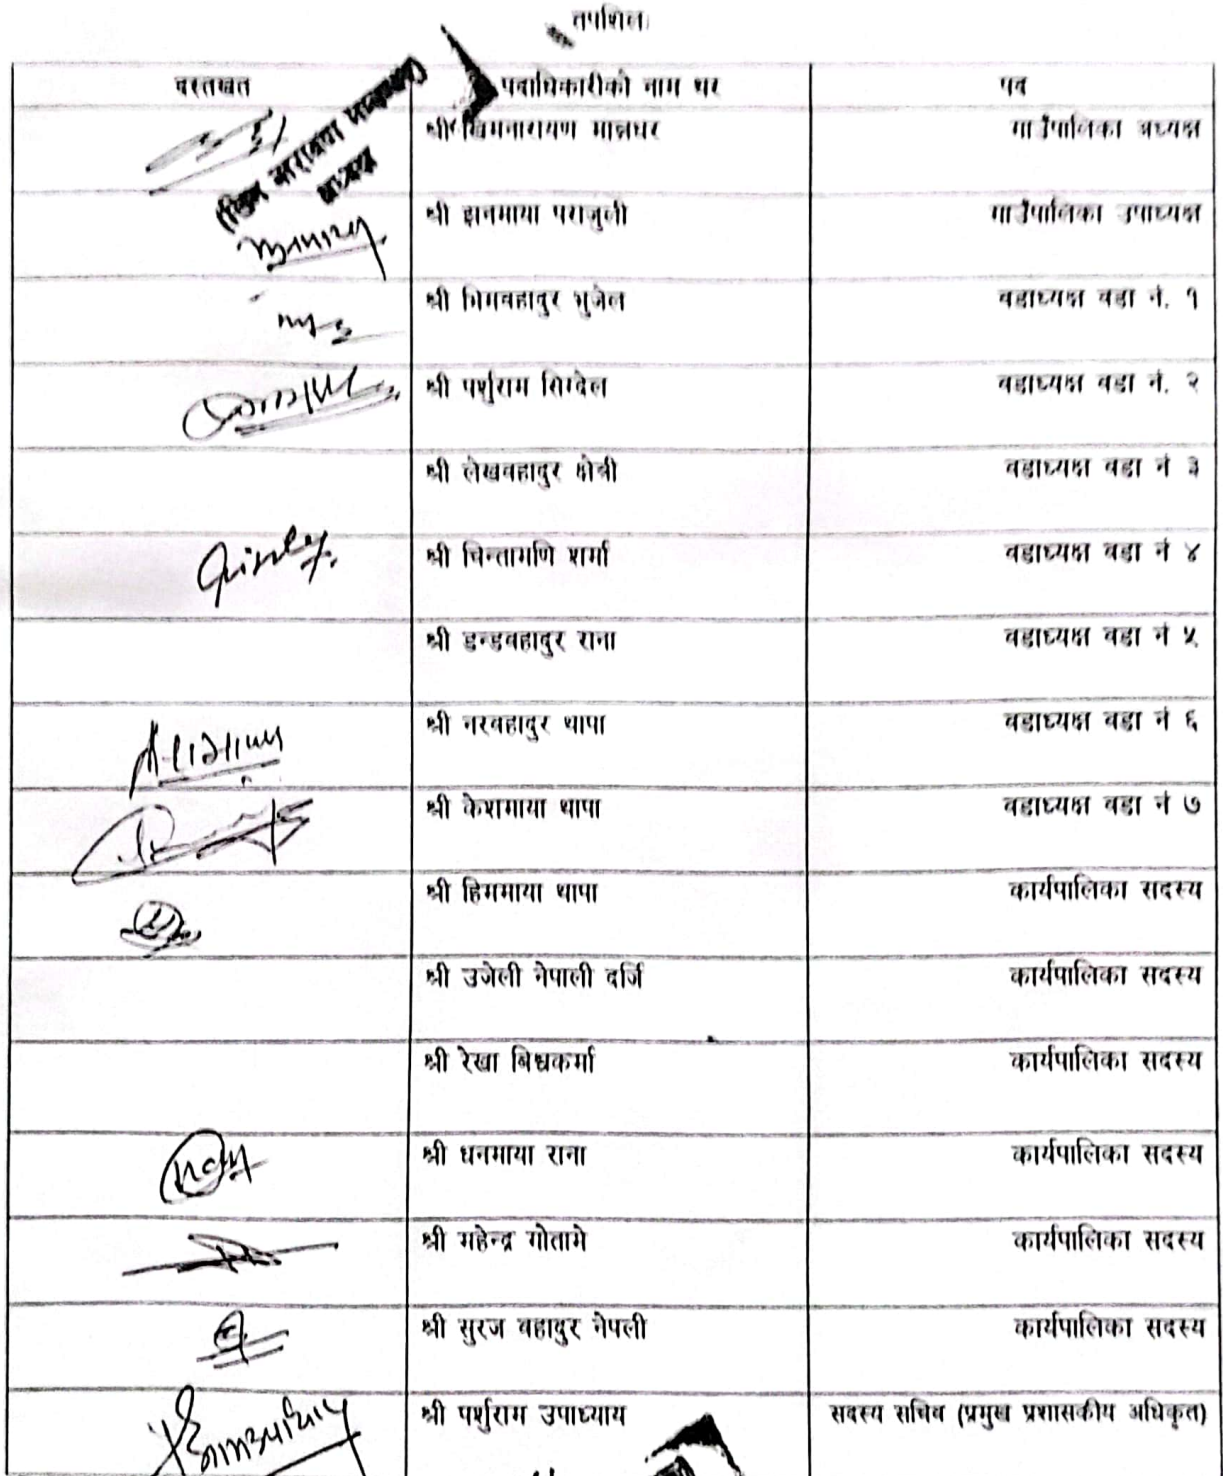 तपशिल
दस्तखत पदाधिकारीको नाम थर पद
श्री खिमनारायण मानन्धर गाउँपालिका अध्यक्ष
श्री ज्ञानमाया पराजुली गाउँपालिका उपाध्यक्ष
श्री भिमबहादुर भुजेल वडाध्यक्ष वडा नं. १
श्री पर्शुराम सिग्देल वडाध्यक्ष वडा नं. २
श्री लेखबहादुर क्षेत्री वडाध्यक्ष वडा नं ३
श्री चिन्तामणि शर्मा वडाध्यक्ष वडा नं ४
श्री डन्डबहादुर राना वडाध्यक्ष वडा नं ५
श्री नरबहादुर थापा वडाध्यक्ष वडा नं ६
श्री केशमाया थापा वडाध्यक्ष वडा नं ७
श्री हिममाया थापा कार्यपालिका सदस्य
श्री उजेली नेपाली दर्जि कार्यपालिका सदस्य
श्री रेखा बिश्वकर्मा कार्यपालिका सदस्य
श्री धनमाया राना कार्यपालिका सदस्य
श्री महेन्द्र गोतामे कार्यपालिका सदस्य
श्री सुरज बहादुर नेपली कार्यपालिका सदस्य
श्री पर्शुराम उपाध्याय सदस्य सचिव (प्रमुख प्रशासकीय अधिकृत)